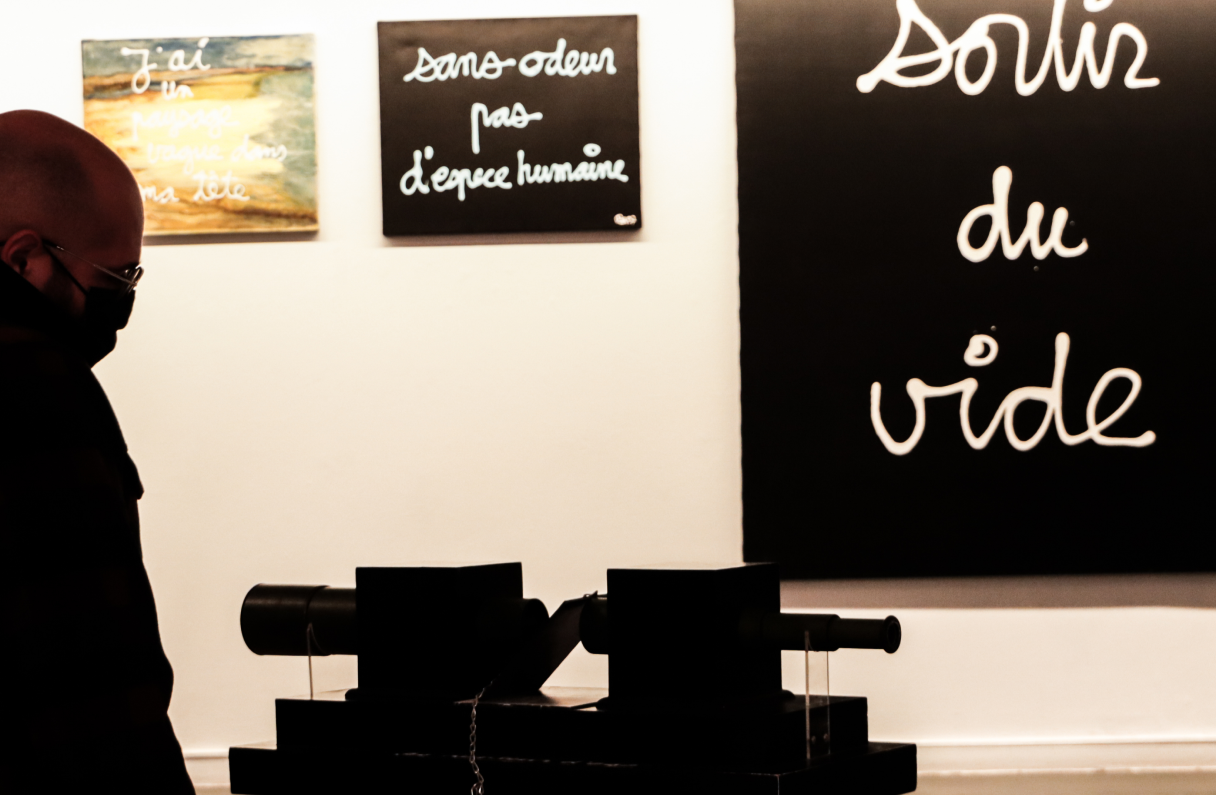 j'ai
un
paysage
vague dans
ma tête
sans odeur
pas
d'espece humaine
Ben
Sortir
du
vide